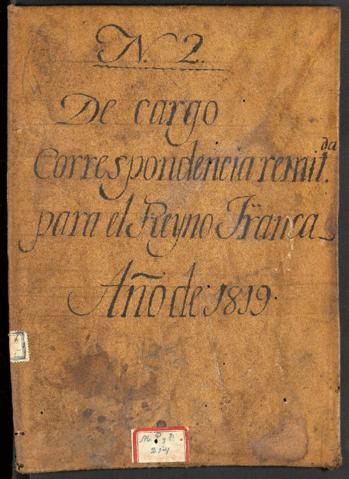 N. 2.
De cargo
Correspondencia remit.da
para el Reyno Franca
Año de 1819.
214